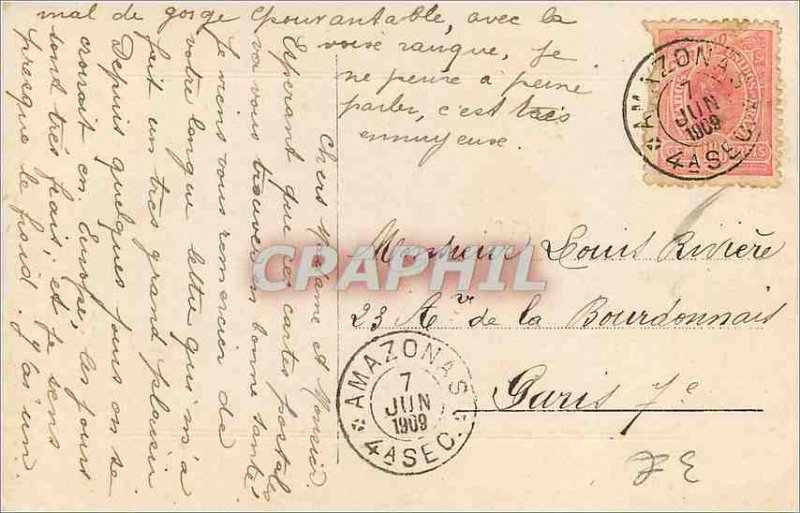 Chers Madame et Monsieur
Esperant que ces cartes postales
va vous trouver en bonne santé
je viens vous remercier de
votre longue lettre qui m'a
fait un très grand plaisir
Depuis quelques jours on se
croirait en Europe, les jours
sont très frais, et je sens
presque le froid. J'ai un
mal de gorge épouvantable, avec la
voix rauque, je
ne peux à peine
parler, c'est très
ennuyeux.
AMAZONAS
7
JUN
1909
4A SEC.
Monsieur Louis Rivière
23 Av de la Bourdonnais
Paris 7e
AMAZONAS
7
JUN
1909
4A SEC.
CPAPHIL